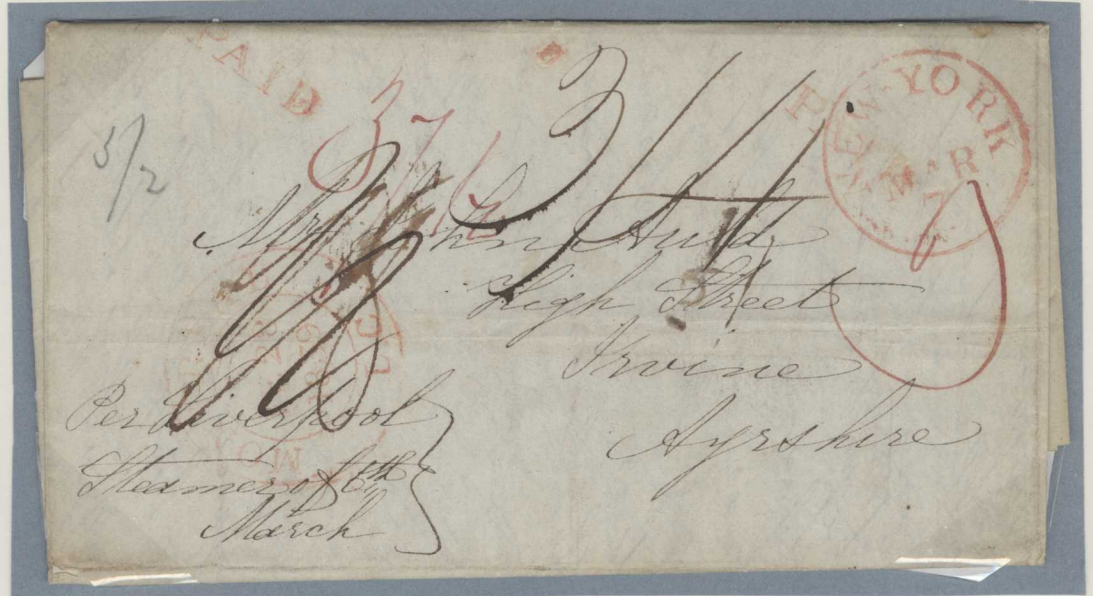 PAID
37 1/2
3/4
5/2
NEW-YORK
MAR
7
Mr John Auld
High Street
Irvine
Ayrshire
Per Liverpool
Steamer of 6th
March